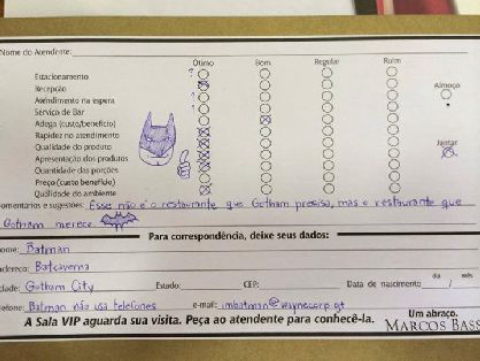 Nome do Atendente:
Ótimo Bom Regular Ruim
Estacionamento
Recepção
Atendimento na espera
Serviço de Bar
Adega (custo/benefício)
Rapidez no atendimento
Qualidade do produto
Apresentação dos produtos
Quantidade das porções
Preço (custo benefício)
Qualidade do ambiente
Almoço
Jantar
? ? ?
omentários e sugestões: Esse não é o restaurante que Gotham precisa, mas o restaurante que
Gotham merece
Para correspondência, deixe seus dados:
ome: Batman
ndereço: Batcaverna
idade: Gotham City Estado: CEP: Data de nascimento: dia mês
/ /
elefone: Batman não usa telefones e-mail: imbatman@waynecorp.gt
A Sala VIP aguarda sua visita. Peça ao atendente para conhecê-la.
Um abraço.
MARCOS BASS